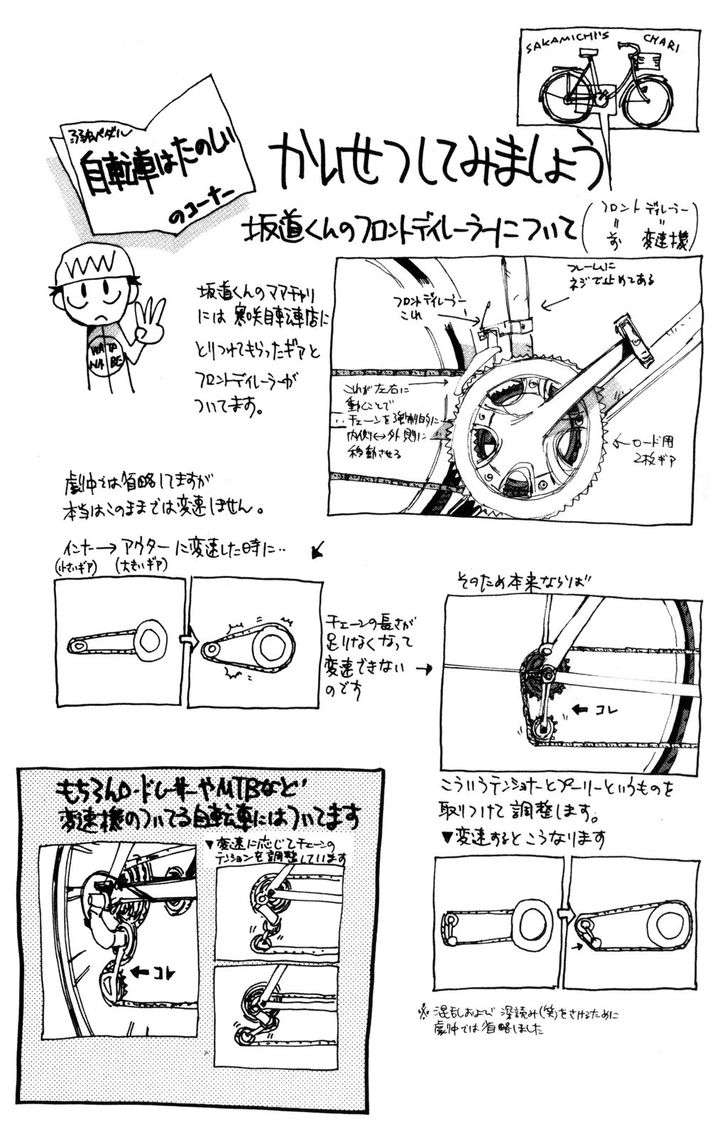 SAKAMICHI'S CHARI
弱虫ペダル
自転車はたのしい
のコーナー
かいせつしてみましょう
坂道くんのフロントディレーラーについて
フロントディレーラー
＝
変速機
WATA
NABE
坂道くんのママチャリ
には寒咲自転車店に
とりつけてもらったギアと
フロントディレーラーが
ついてます。
フロントディレーラー
これ
フレームに
ネジで止めてある
これが左右に
動くことで
チェーンを強制的に
内側↔外側に
移動させる
←ロード用
2枚ギア
劇中では省略してますが
本当はこのままでは変速しません。
インナー→アウターに変速した時に‥
(小さいギア) (大きいギア)
チェーンの長さが
足りなくなって
変速できない
のです
そのため本来ならば
←コレ
こういうテンショナーとプーリーというものを
取りつけて調整します。
▼変速するとこうなります
もちろんロードレーサーやMTBなど
変速機のついてる自転車にはついてます
▼変速に応じてチェーンの
テンションを調整しています
←コレ
※混乱および深読み(笑)をさけるために
劇中では省略しました